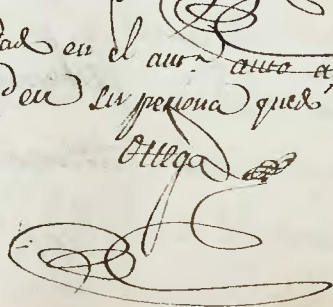 en el aut.^r auto a
en su persona qued
Ortega